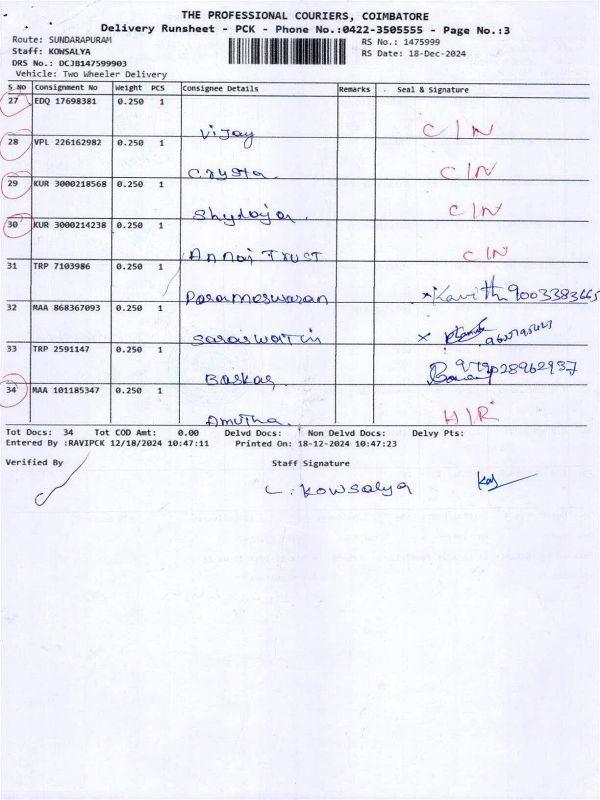 THE PROFESSIONAL COURIERS, COIMBATORE
Delivery Runsheet - PCK - Phone No.:0422-3505555 - Page No.:3
Route: SUNDARAPURAM RS No.: 1475999
Staff: KOWSALYA RS Date: 18-Dec-2024
DRS No.: DCJB147599903
Vehicle: Two Wheeler Delivery
S.No Consignment No Weight PCS Consignee Details Remarks Seal & Signature
27 EDQ 17698381 0.250 1
Vijay C/N
28 VPL 226162982 0.250 1
C/N
29 KUR 3000218568 0.250 1
Shylaja. C/N
30 KUR 3000214238 0.250 1
Annai TRUST C/N
31 TRP 7103986 0.250 1
Parameswaran Kavitha 9003383665
32 MAA 868367093 0.250 1
Saraswathi
33 TRP 2591147 0.250 1
Baskar
34 MAA 101185347 0.250 1
Amutha. H/R
Tot Docs: 34 Tot COD Amt: 0.00 Delvd Docs: Non Delvd Docs: Delvy Pts:
Entered By :RAVIPCK 12/18/2024 10:47:11 Printed On: 18-12-2024 10:47:23
Verified By Staff Signature
L. Kowsalya